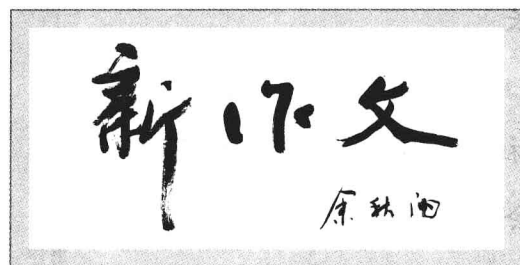 新作文
余秋雨